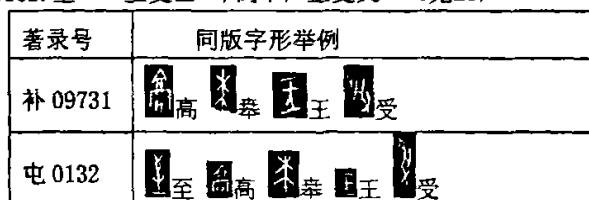 著录号 同版字形举例
补 09731 高 𠦪 王 受
屯 0132 至 高 𠦪 王 受